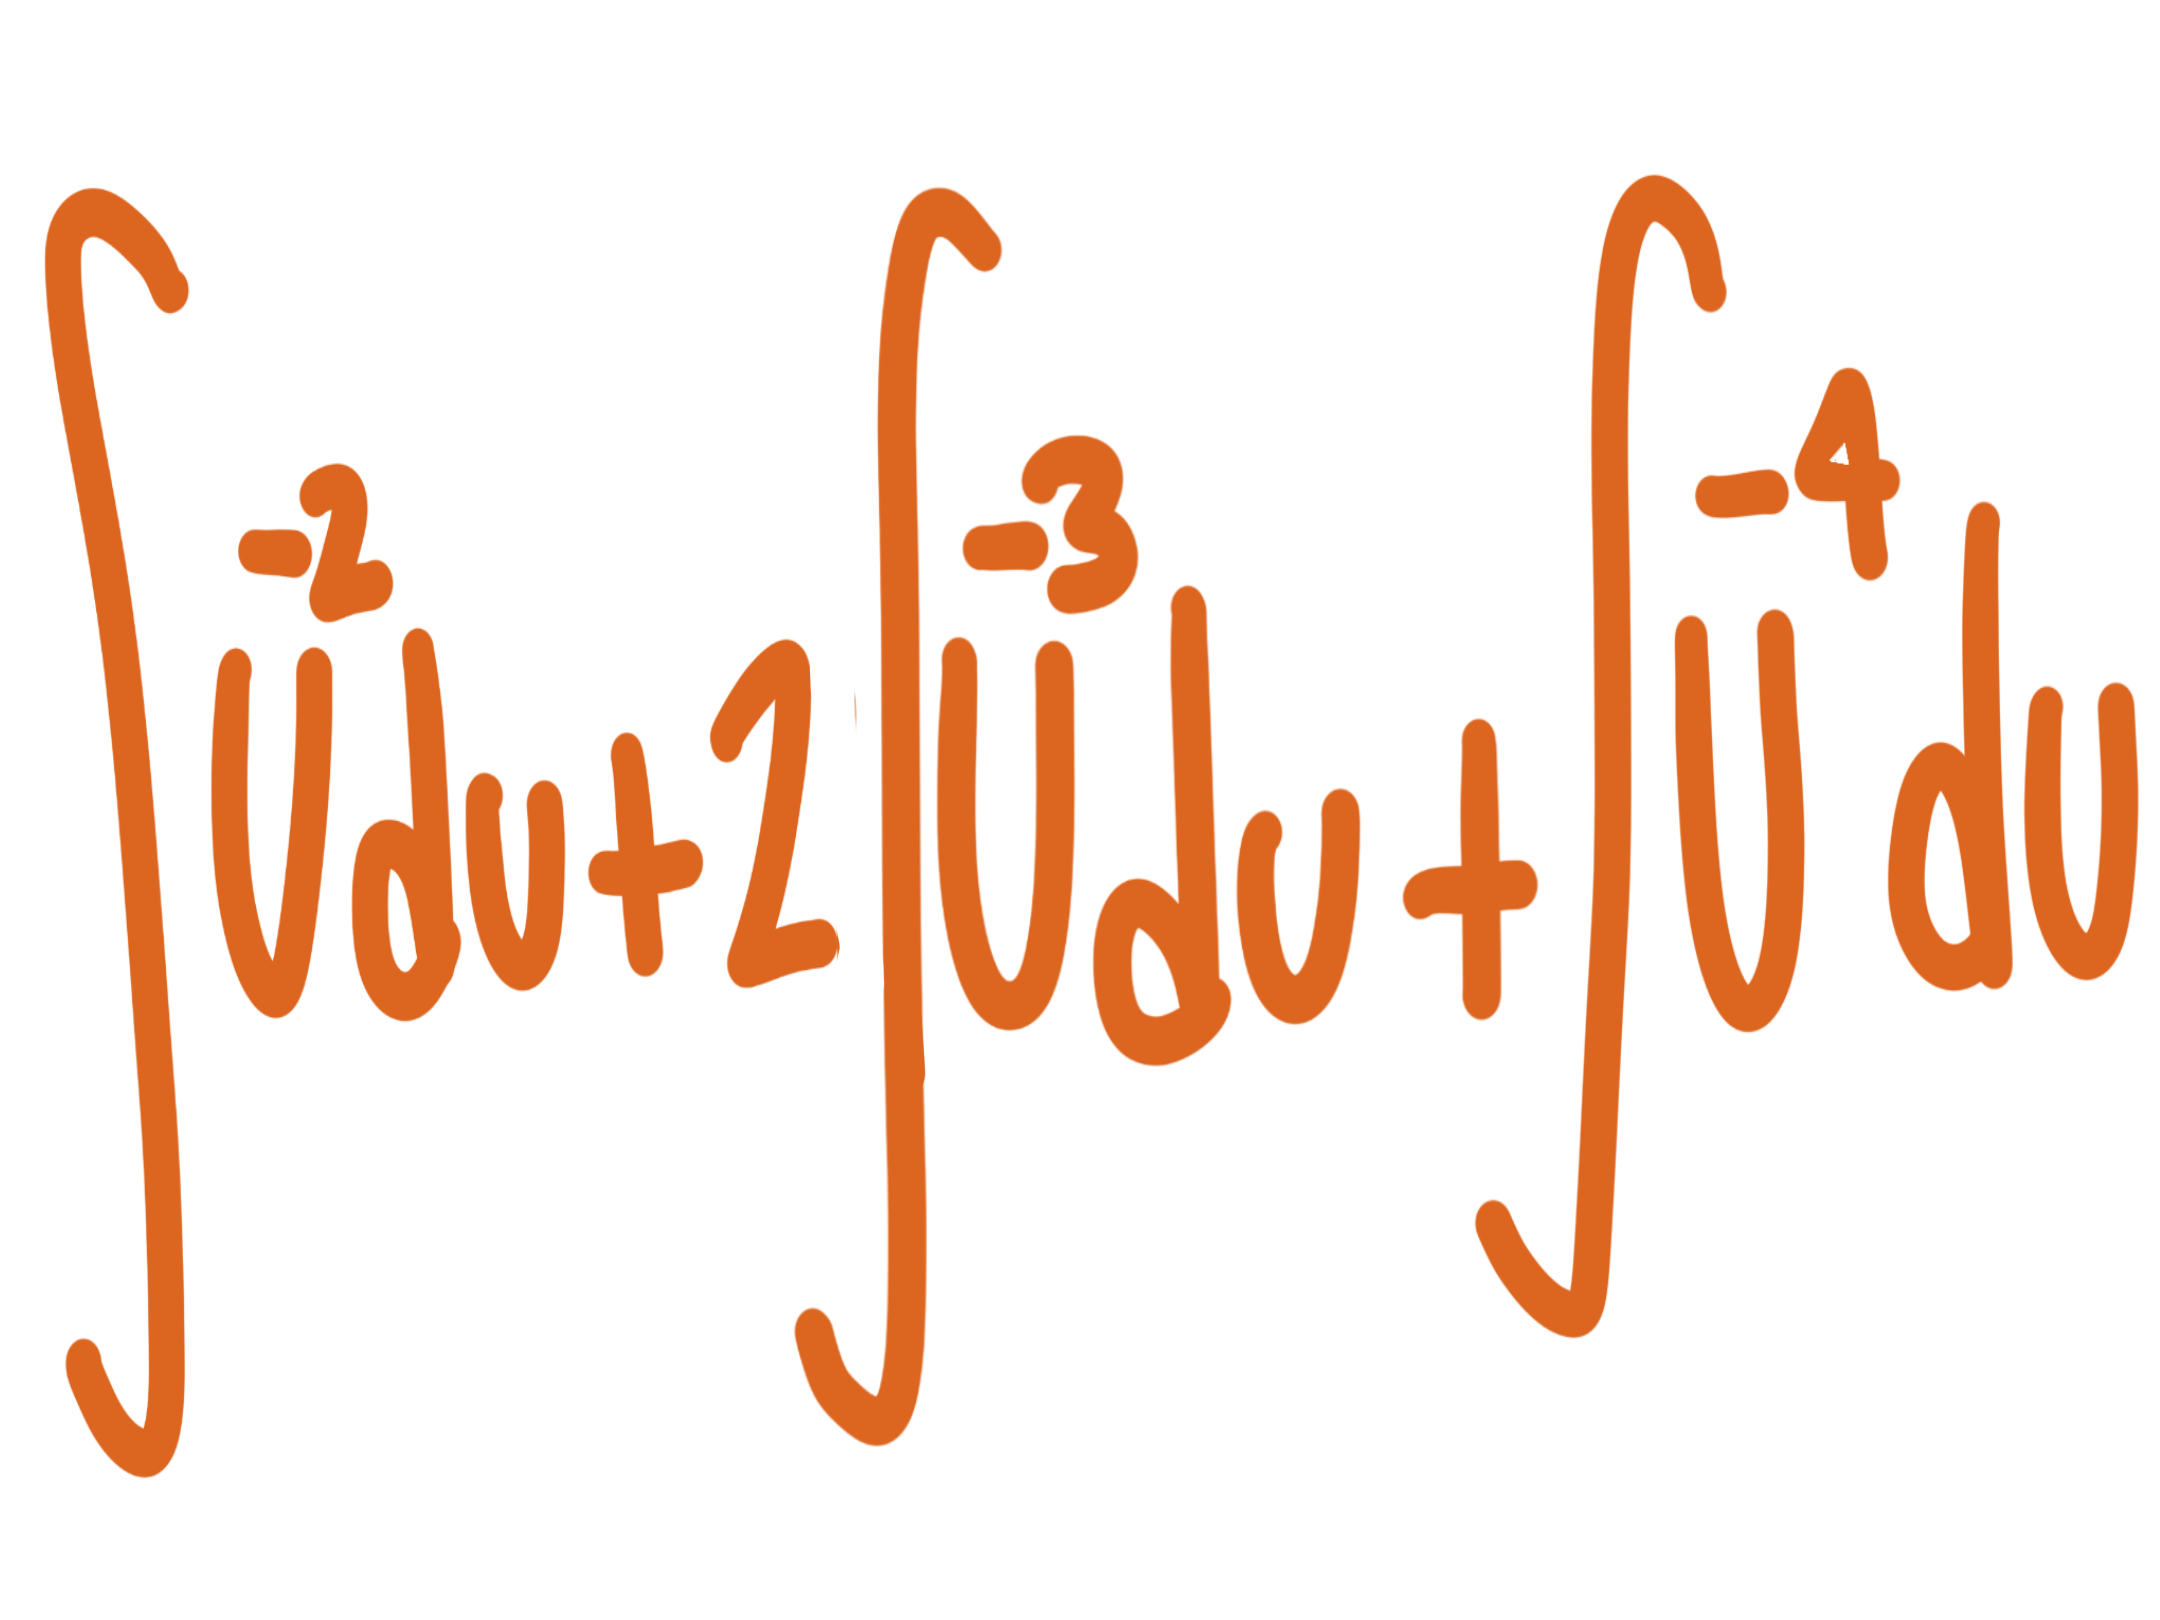 ∫u⁻²du+2∫u⁻³du+∫u⁻⁴du